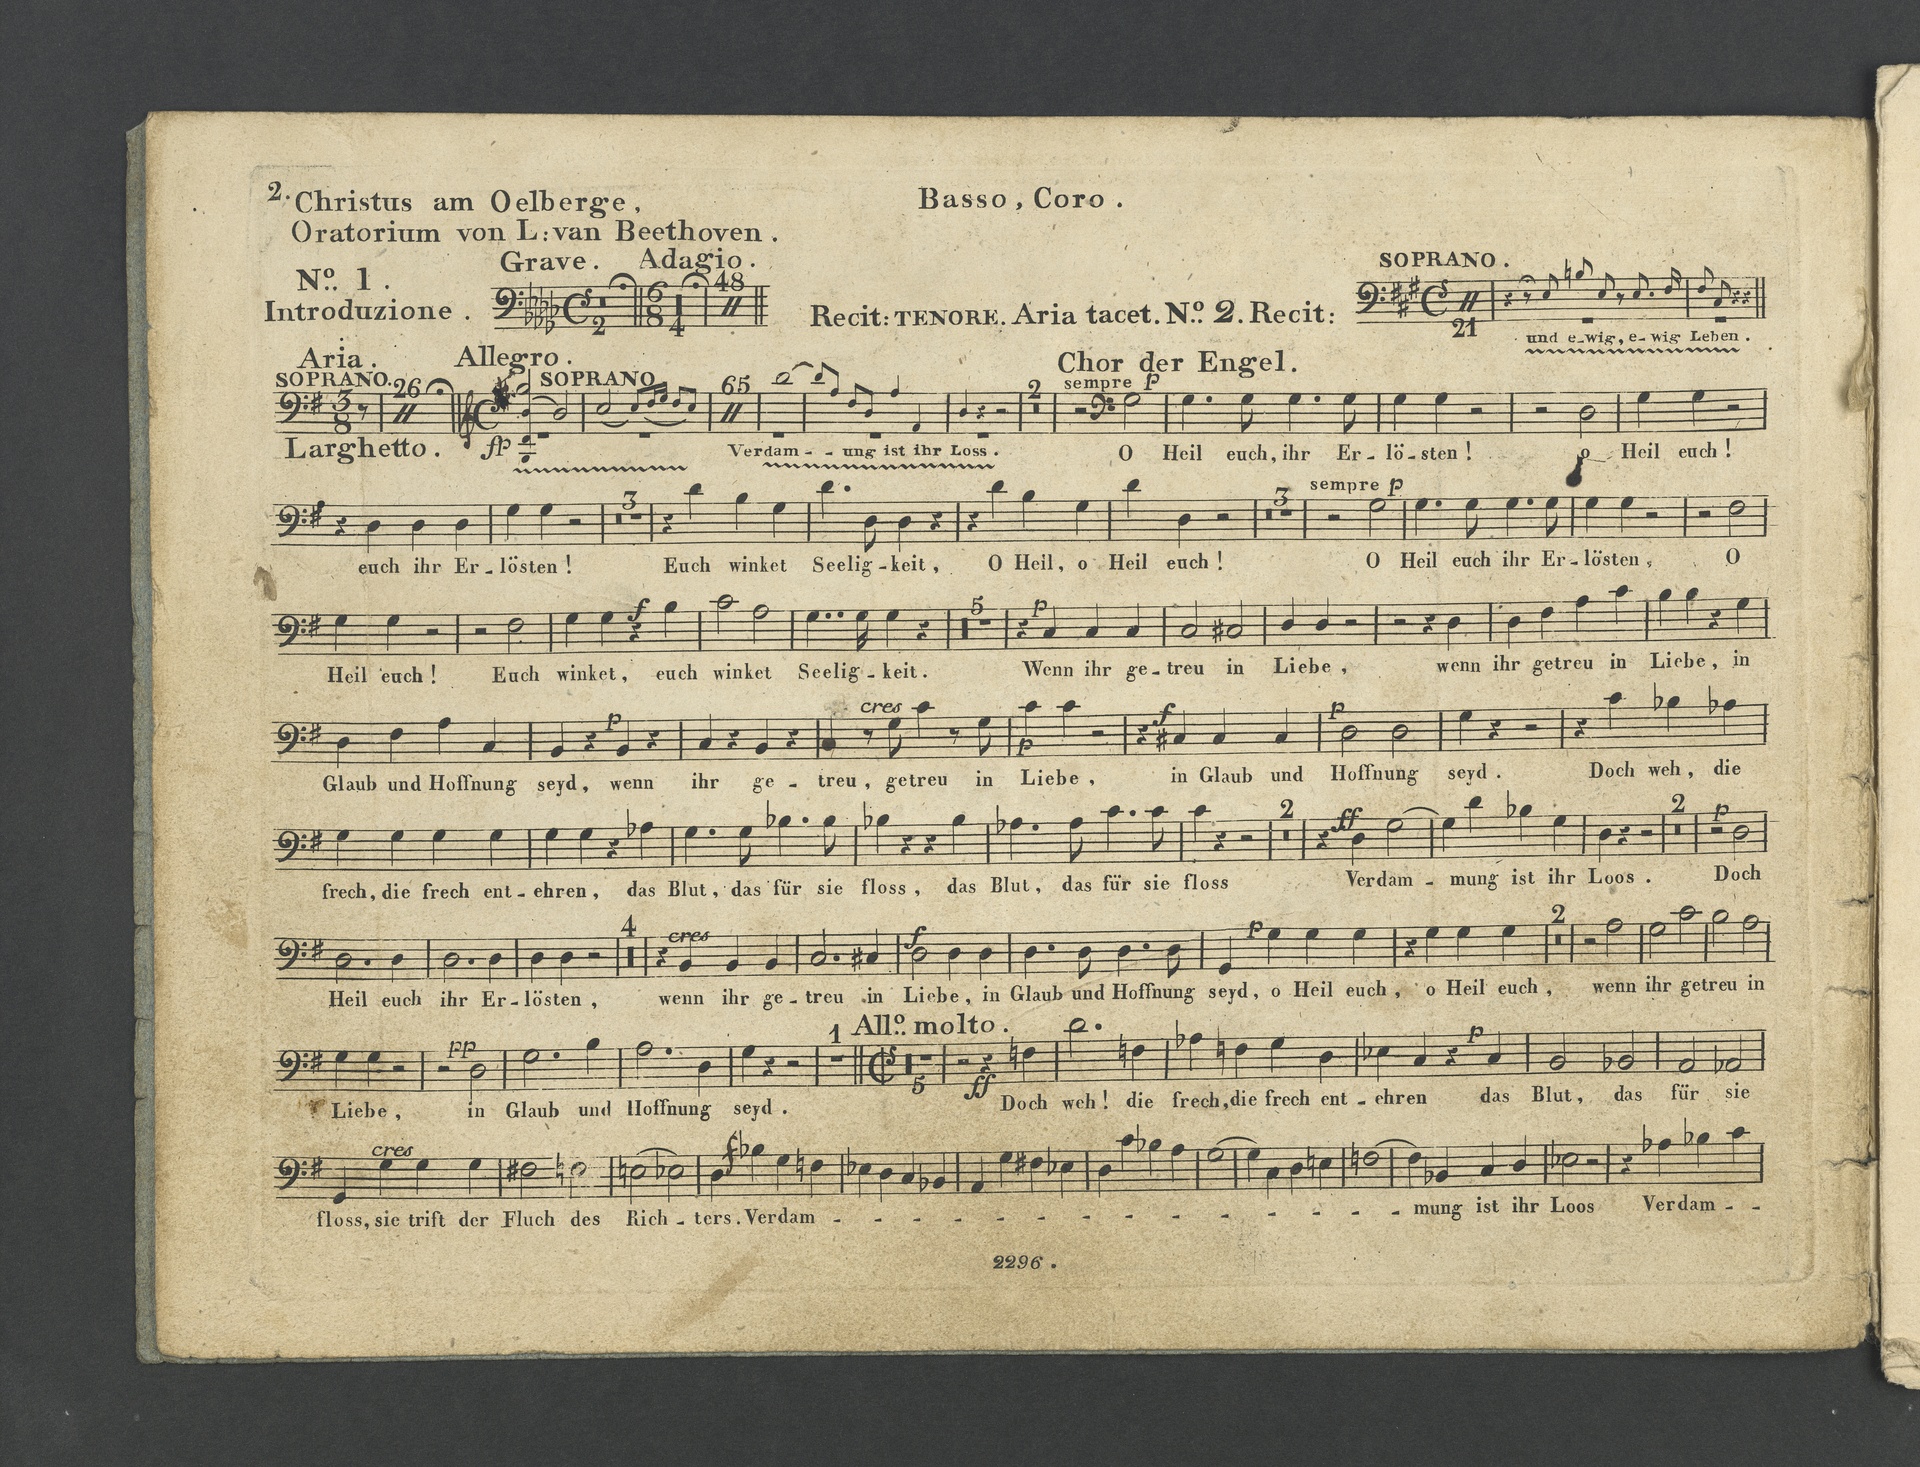 2. Christus am Oelberge,
Basso, Coro.
Oratorium von L: van Beethoven.
Nº. 1.
Grave. Adagio.
SOPRANO.
Introduzione.
2 4 48
Recit: TENORE. Aria tacet. Nº. 2. Recit:
21
und e-wig, e-wig Leben.
Aria. Allegro.
Chor der Engel.
SOPRANO. 26 SOPRANO 65 2 sempre p
Larghetto. fp Verdam - - ung ist ihr Loss. O Heil euch, ihr Er-lö-sten! o Heil euch!
3 3 sempre p
euch ihr Er-lösten! Euch winket Seelig-keit, O Heil, o Heil euch! O Heil euch ihr Er-lösten, O
f 5 p
Heil euch! Euch winket, euch winket Seelig-keit. Wenn ihr ge-treu in Liebe, wenn ihr getreu in Liebe, in
p cres p f p
Glaub und Hoffnung seyd, wenn ihr ge - treu, getreu in Liebe, in Glaub und Hoffnung seyd. Doch weh, die
2 ff 2 p
frech, die frech ent-ehren, das Blut, das für sie floss, das Blut, das für sie floss Verdam - mung ist ihr Loos. Doch
4 cres f p 2
Heil euch ihr Er-lösten, wenn ihr ge-treu in Liebe, in Glaub und Hoffnung seyd, o Heil euch, o Heil euch, wenn ihr getreu in
pp 1 Allº. molto. 5 ff p
Liebe, in Glaub und Hoffnung seyd. Doch weh! die frech, die frech ent-ehren das Blut, das für sie
cres f
floss, sie trift der Fluch des Rich-ters. Verdam - - - - - - - - - - - - - mung ist ihr Loos Verdam - -
2296.